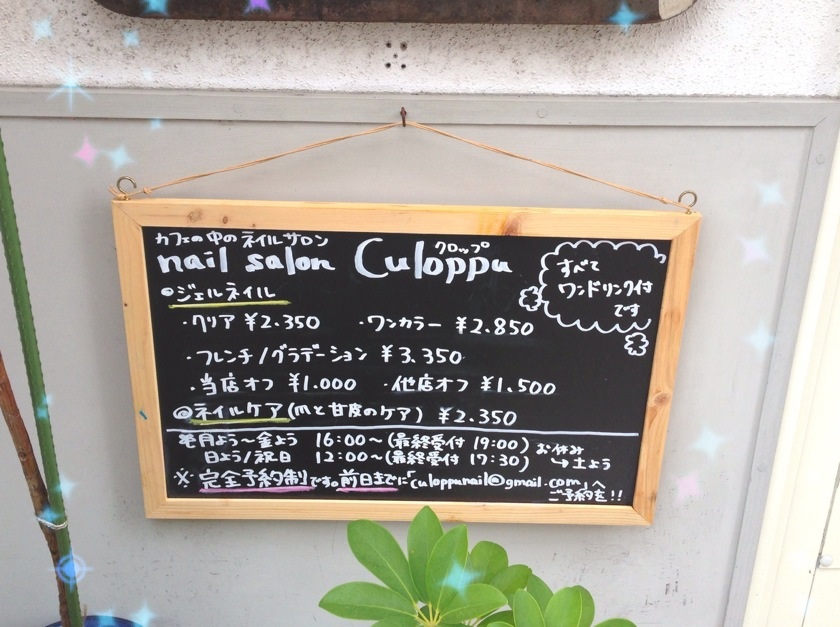 カフェの中のネイルサロン
nail salon Culoppu
クロップ
すべて
ワンドリンク付
です
ジェルネイル
・クリア ¥2.350 ・ワンカラー ¥2.850
・フレンチ/グラデーション ¥3.350
・当店オフ ¥1.000 ・他店オフ ¥1.500
ネイルケア(爪と甘皮のケア) ¥2.350
月よう〜金よう 16:00〜(最終受付 19:00)
日よう/祝日 12:00〜(最終受付 17:30)
お休み
↳土よう
※完全予約制です。前日までに「culoppunail@gmail.com」へ
ご予約を!!